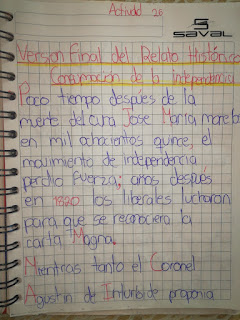 Actividad 26
SAVAL
Versión Final del Relato Histórico
Consumación de la independencia
Poco tiempo después de la
muerte del cura José María morelos
en mil ochocientos quince, el
movimiento de independencia
perdio fuerza; años después
en 1820 los liberales lucharon
para que se reconociera la
carta Magna.
Mientras tanto el Coronel
Agustín de Iturbide proponia